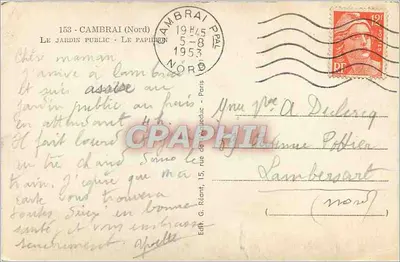 153 - CAMBRAI (Nord)
LE JARDIN PUBLIC - LE PAPILLON
CAMBRAI PPAL
19H45
5-8
1953
NORD
Chère maman
J'arrive à Cambrai
et suis assise au
jardin public au frais
En attendant 4 h.
Il fait lourd
très chaud dans le
train. J'espère que ma
carte vous trouvera
toutes deux en bonne
santé, et vous embrasse
sincèrement Yvette
A Declercq
Avenue Pottier
Lambersart
(Nord)
Edit. G. Réant, 15, rue de - Paris
CPARHIF